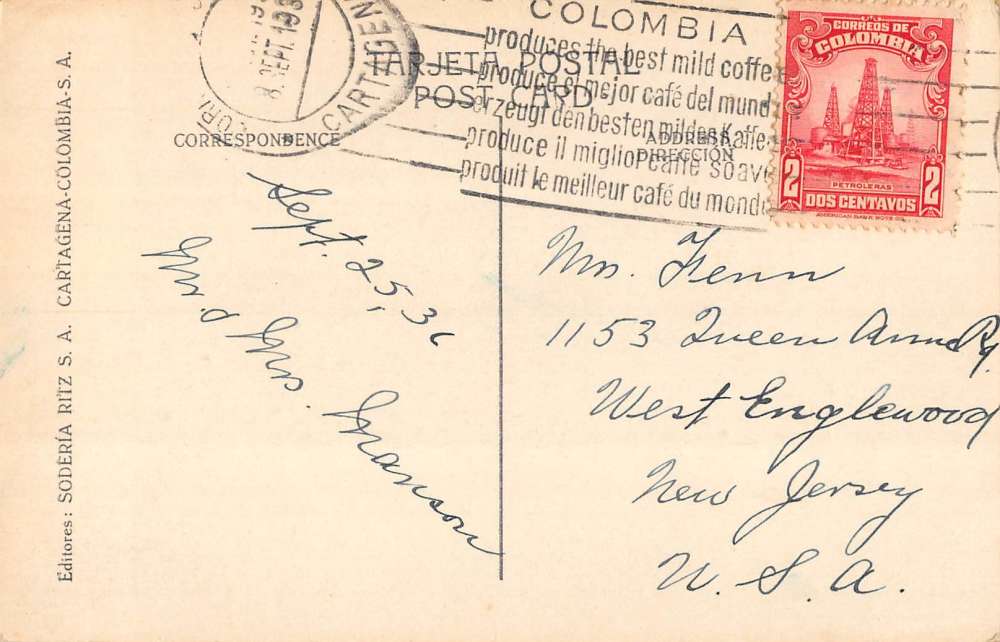 COLOMBIA
produces the best mild coffe
produce el mejor café del mund
erzeugt den besten mildes Kaffe
produce il miglior caffe soave
produit le meilleur café du mond
8. SEPT. 193
CARTAGEN
TARJETA POSTAL
POST CARD
CORRESPONDENCE
ADDRESS
DIRECCION
CORREOS DE
COLOMBIA
2 2
PETROLERAS
DOS CENTAVOS
AMERICAN BANK NOTE CO.
Editores: SODERÍA RITZ S. A. CARTAGENA-COLOMBIA-S. A.
Sept. 25, 36
Mr. & Mrs. Manson
Mr. Fenn
1153 Queen Anne Rd.
West Englewood
New Jersey
U. S. A.